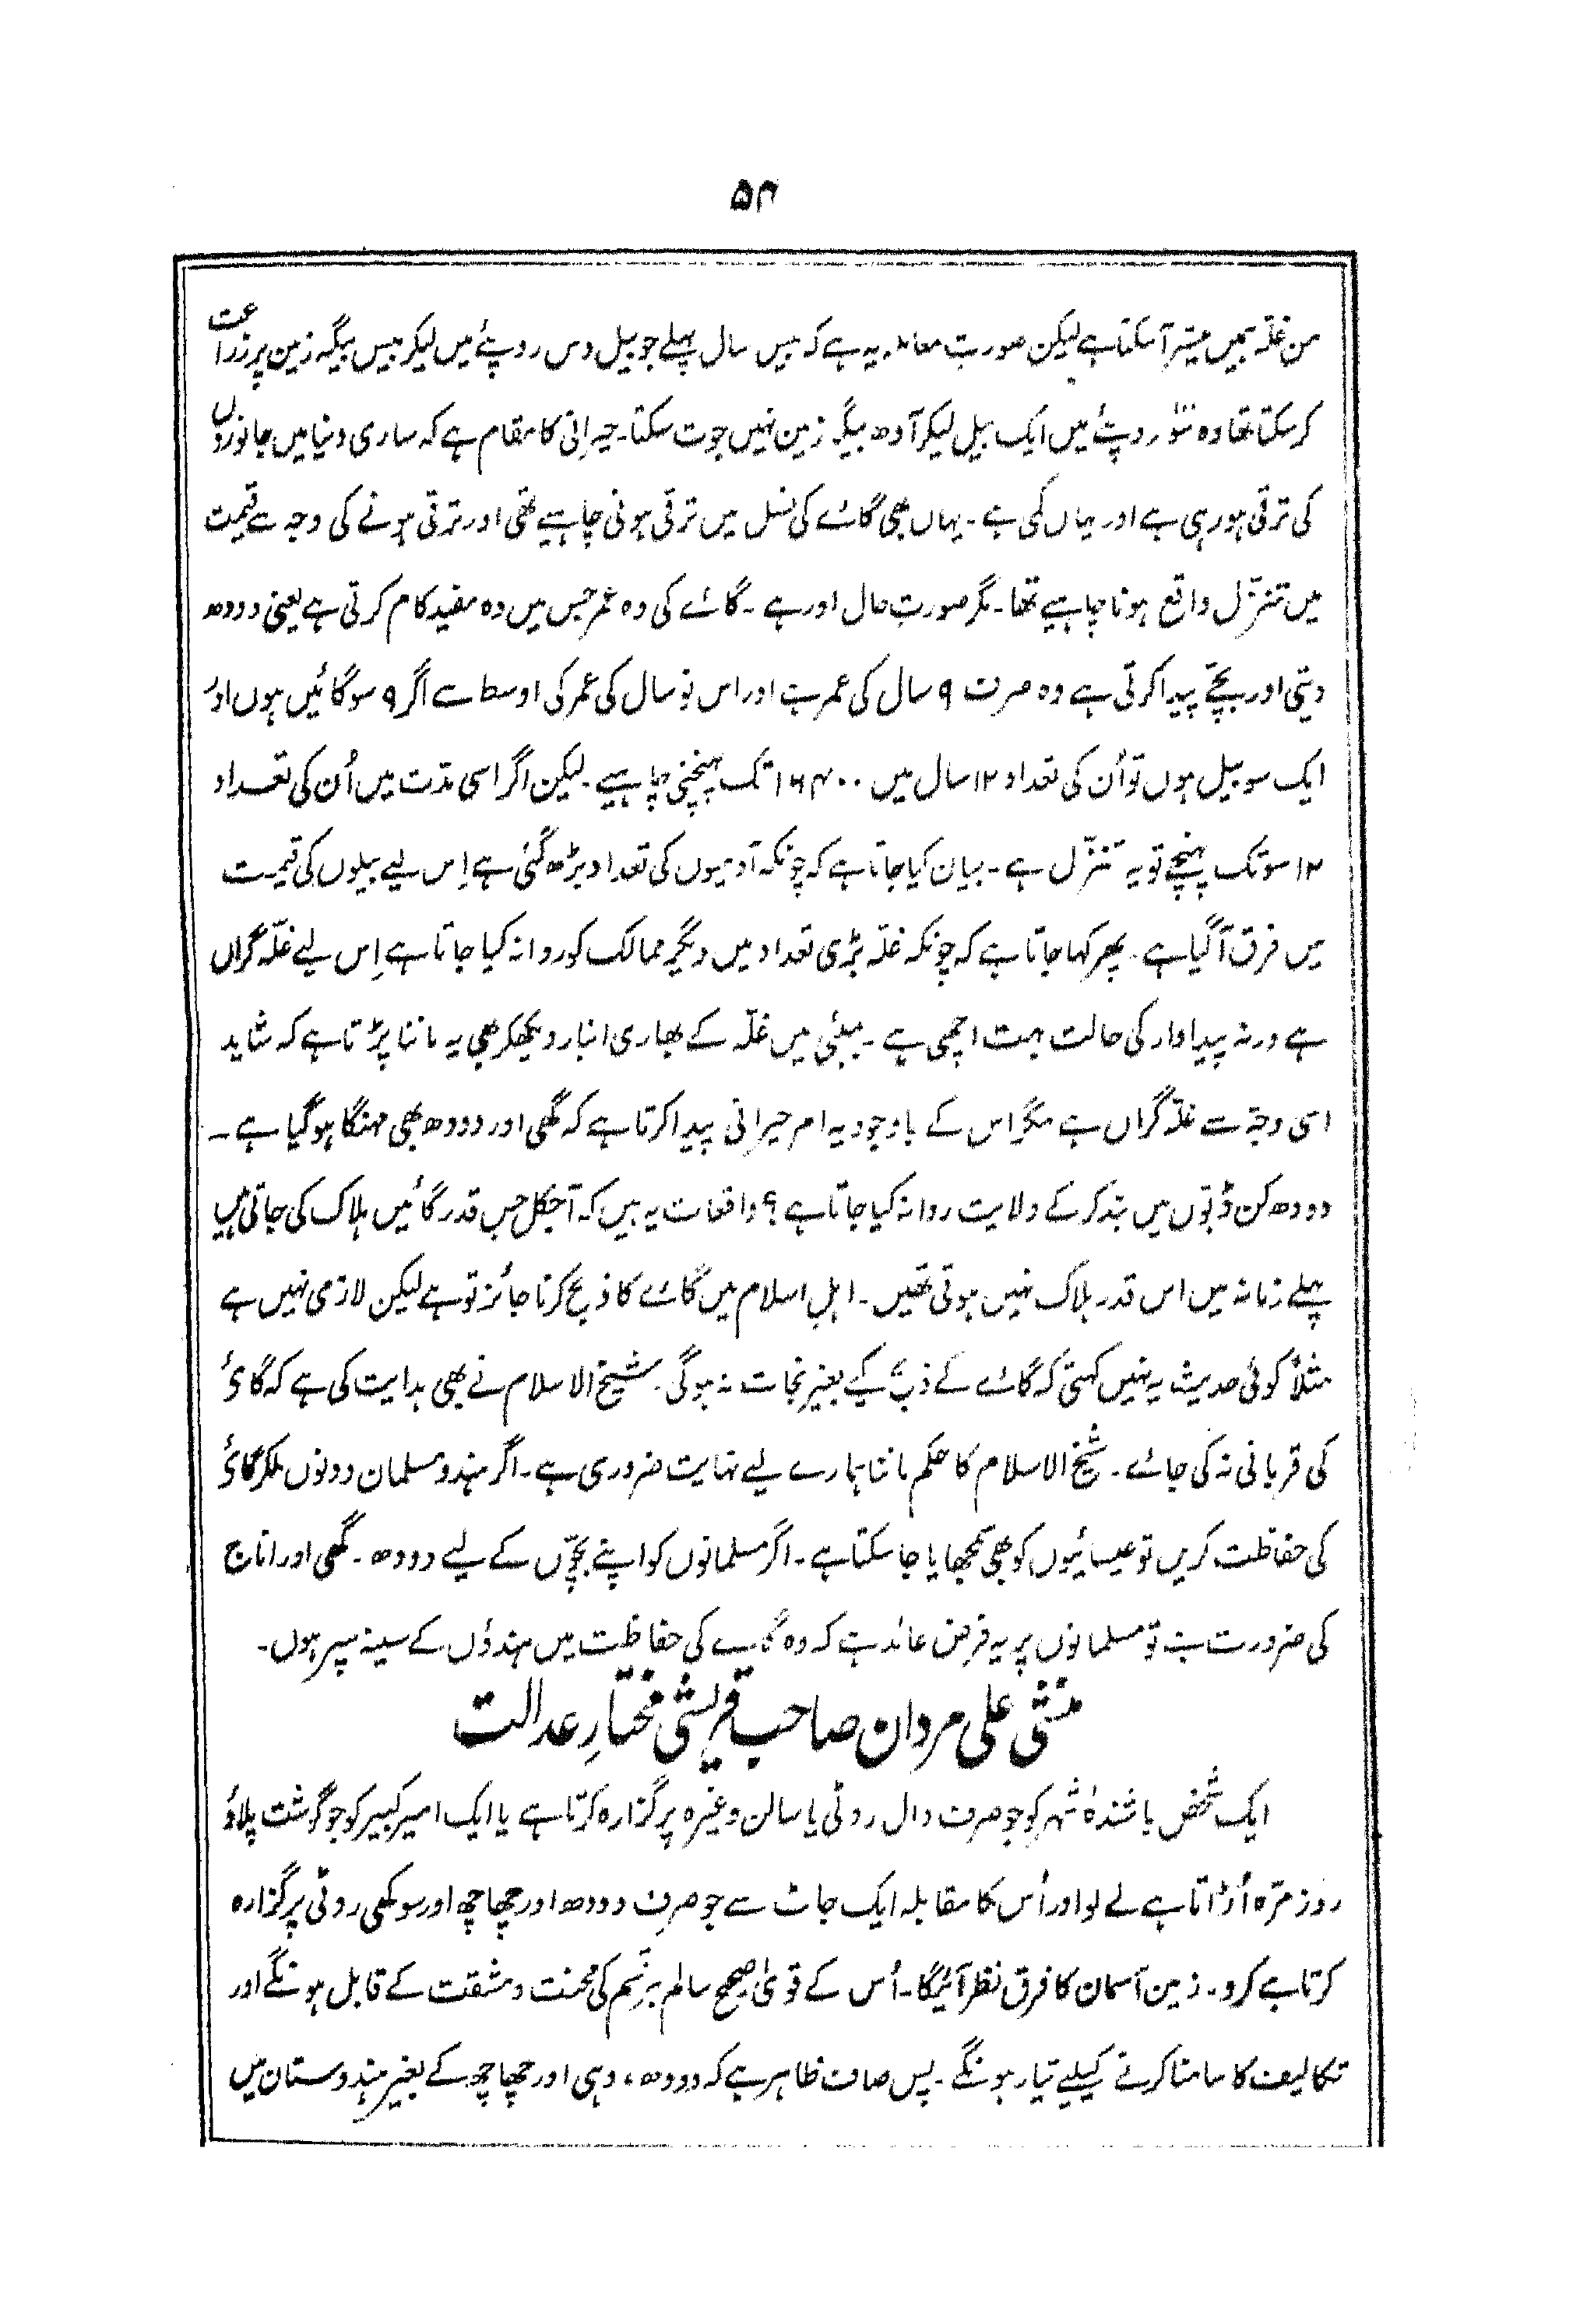 ۵۴
من غلّہ ہمیں میسّر آسکتا ہے لیکن صورتِ معاملہ یہ ہے کہ بیس سال پہلے جو بیل دس روپئے میں لیکر بیس بیگہ زمین پر زراعت
کرسکتا تھا وہ سَو روپئے میں ایک بیل لیکر آدھ بیگہ زمین نہیں جوت سکتا۔ حیرانی کا مقام ہے کہ ساری دنیا میں جانوروں
کی ترقی ہورہی ہے اور یہاں کمی ہے۔ یہاں بھی گائے کی نسل میں ترقی ہونی چاہیے تھی اور ترقی ہونے کی وجہ سے قیمت
میں تنزّل واقع ہونا چاہیے تھا۔ مگر صورتِ حال اور ہے۔ گائے کی وہ عمر جس میں وہ مفید کام کرتی ہے یعنی دودھ
دیتی اور بچّے پیدا کرتی ہے وہ صرف ۹ سال کی عمر ہے اور اس نو سال کی عمر کی اوسط سے اگر ۹ سو گائیں ہوں اور
ایک سو بیل ہوں تو اُن کی تعداد ۱۲ سال میں ۱۶۴۰۰ تک پہنچنی چاہیے۔ لیکن اگر اسی مدّت میں اُن کی تعداد
۱۲ سو تک پہنچے تو یہ تنزّل ہے۔ بیان کیا جاتا ہے کہ چونکہ آدمیوں کی تعداد بڑھ گئی ہے اِس لیے بیلوں کی قیمت
میں فرق آگیا ہے۔ پھر کہا جاتا ہے کہ چونکہ غلّہ بڑی تعداد میں دیگر ممالک کو روانہ کیا جاتا ہے اِس لیے غلّہ گراں
ہے ورنہ پیداوار کی حالت بہت اچھی ہے۔ بمبئی میں غلّہ کے بھاری انبار دیکھکر بھی یہ ماننا پڑتا ہے کہ شاید
اسی وجہ سے غلّہ گراں ہے مگر اس کے باوجود یہ امر حیرانی پیدا کرتا ہے کہ گھی اور دودھ بھی مہنگا ہوگیا ہے۔
دودھ کن ڈبّوں میں بند کرکے ولایت روانہ کیا جاتا ہے؟ واقعات یہ ہیں کہ آجکل جس قدر گائیں ہلاک کی جاتی ہیں
پہلے زمانہ میں اس قدر ہلاک نہیں ہوتی تھیں۔ اہلِ اسلام میں گائے کا ذبح کرنا جائز تو ہے لیکن لازمی نہیں ہے
مثلاً کوئی حدیث یہ نہیں کہتی کہ گائے کے ذبح کیے بغیر نجات نہ ہوگی۔ شیخ الاسلام نے بھی ہدایت کی ہے کہ گائے
کی قربانی نہ کی جائے۔ شیخ الاسلام کا حکم ماننا ہمارے لیے نہایت ضروری ہے۔ اگر ہندو مسلمان دونوں ملکر گائے
کی حفاظت کریں تو عیسائیوں کو بھی سمجھایا جاسکتا ہے۔ اگر مسلمانوں کو اپنے بچّوں کے لیے دودھ۔ گھی اور اناج
کی ضرورت ہے تو مسلمانوں پر یہ فرض عائد ہے کہ وہ گائے کی حفاظت میں ہندوؤں کے سینہ سپر ہوں۔
منشی علی مردان صاحب قریشی مختارِ عدالت
ایک شخص باشندۂ شہر کو جو صرف دال روٹی یا سالن وغیرہ پر گزارہ کرتا ہے یا ایک امیر کبیر کو جو گوشت پلاؤ
روز مرّہ اُڑاتا ہے لے لو اور اُس کا مقابلہ ایک جاٹ سے جو صرف دودھ اور چھاچھ اور سوکھی روٹی پر گزارہ
کرتا ہے کرو۔ زمین آسمان کا فرق نظر آئیگا۔ اُس کے قویٰ صحیح سالم ہر قسم کی محنت و مشقت کے قابل ہونگے اور
تکالیف کا سامنا کرنے کیلیے تیار ہونگے۔ پس صاف ظاہر ہے کہ دودھ، دہی اور چھاچھ کے بغیر ہندوستان میں